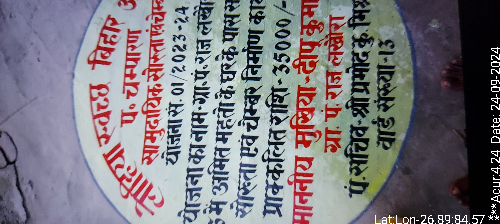 लोहिया स्वच्छ बिहार अ
प. चम्पारण
सामुदायिक सोख्ता एवं चेम्ब
योजना सं. 01/2023-24
योजना का नाम-ग्रा. पं. राज लखौरा
में अमित महतो के घर के पास स
सोख्ता एवं चेम्बर निर्माण का
प्राक्कलित राशि-35000/-
माननीय मुखिया-दीपू कुमा
ग्रा. पं. राज लखौरा
पं. सचिव-श्री प्रमोद कु. मिश्र
वार्ड संख्या-13
Lat Lon-26.89:84.57
Date:22-05-2024